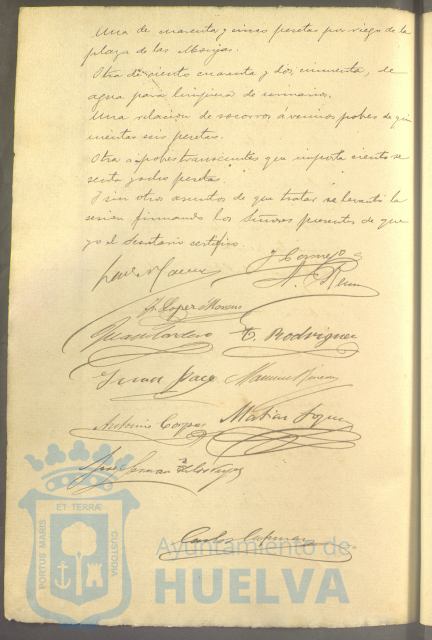 Una de cuarenta y cinco pesetas por riego de la
plaza de las Monjas.
Otra de ciento cuarenta y dos, cincuenta, de
agua para limpieza de urinarios.
Una relacion de socorros á vecinos pobres de qui
nientas seis pesetas.
Otra a pobres transeuntes que importa ciento se
senta y ocho pesetas.
Y sin otros asuntos de que tratar se levantó la
sesion firmando los Señores presentes de que
yo el Secretario certifico.
J. Lopez Moreno
Juan E. Rodriguez
Juan Manuel
Antonio Matias
Carlos
ET TERRÆ
PORTUS MARIS
CUSTODIA
Ayuntamiento de
HUELVA